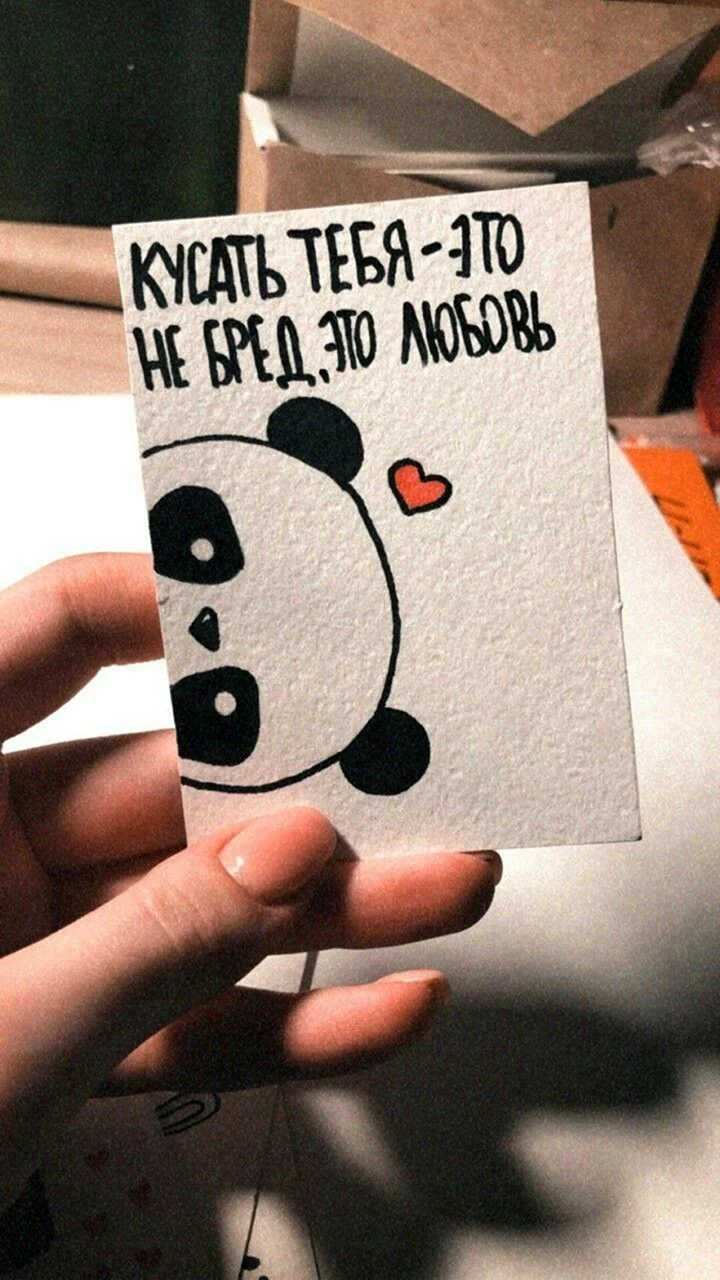 КУСАТЬ ТЕБЯ-ЭТО
НЕ БРЕД, ЭТО ЛЮБОВЬ